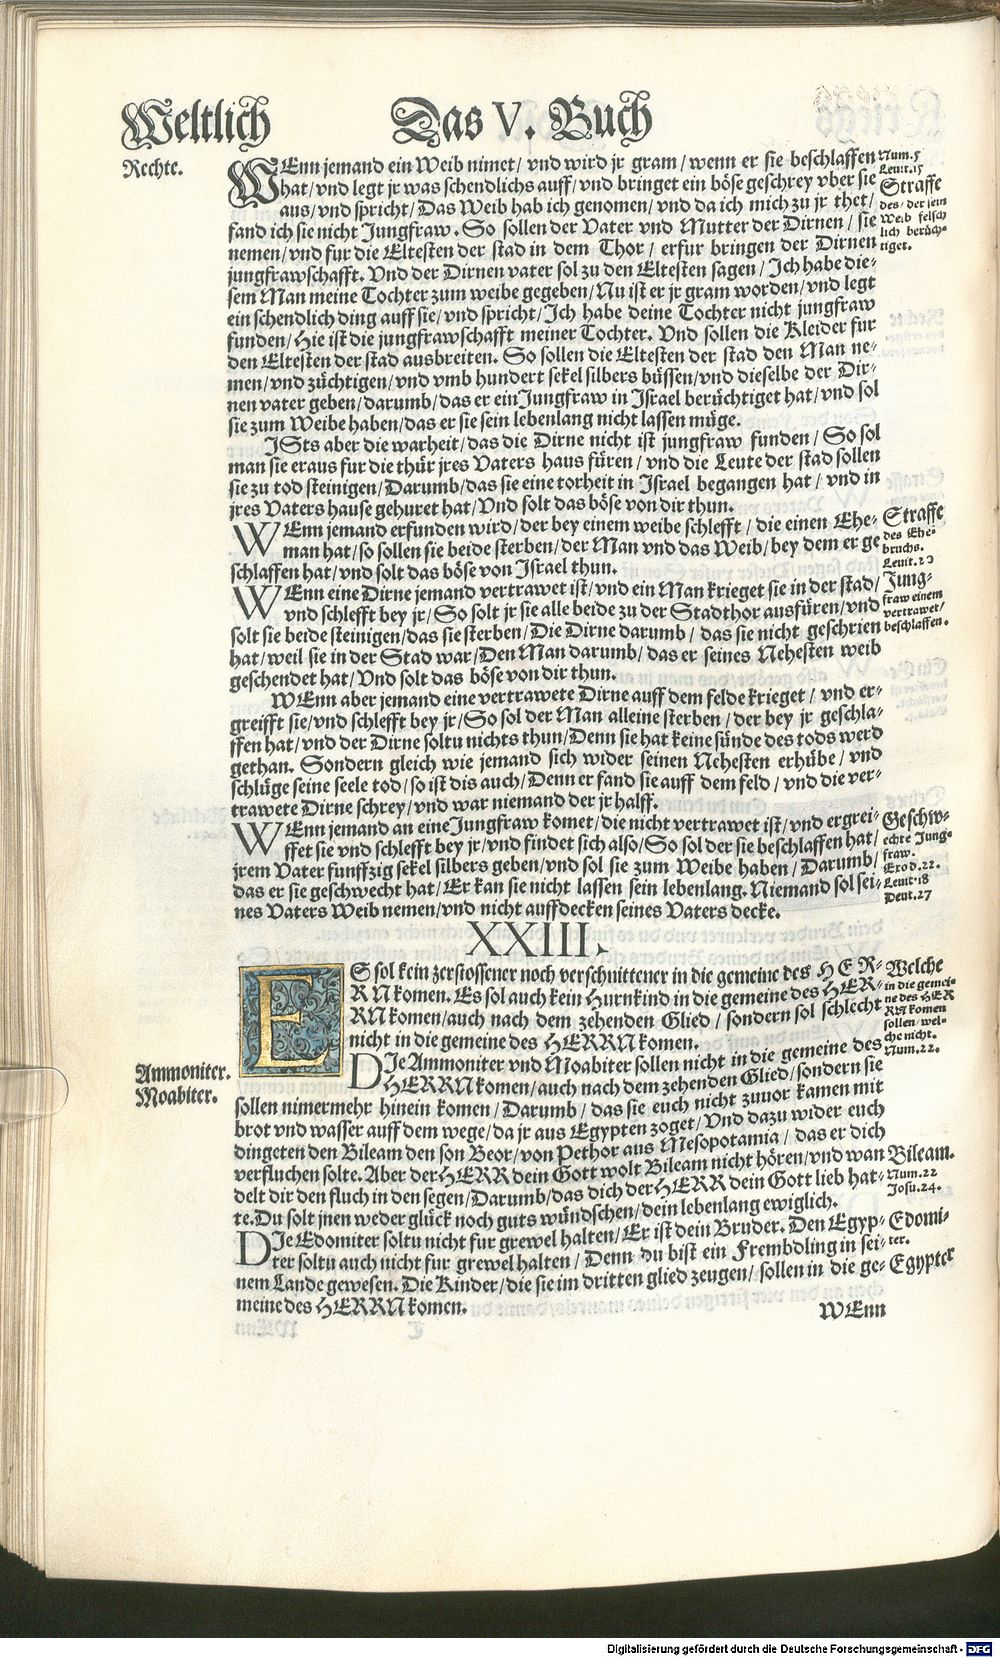 Weltlich Das V. Buch
Rechte.
WEnn jemand ein Weib nimet / vnd wird jr gram / wenn er sie beschlaffen
hat / vnd legt jr was schendlichs auff / vnd bringet ein böse geschrey vber sie
aus / vnd spricht / Das Weib hab ich genomen / vnd da ich mich zu jr thet /
fand ich sie nicht Jungfraw. So sollen der Vater vnd Mutter der Dirnen / sie
nemen / vnd fur die Eltesten der stad in dem Thor / erfur bringen der Dirnen
jungfrawschafft. Vnd der Dirnen vater sol zu den Eltesten sagen / Ich habe die-
sem Man meine Tochter zum weibe gegeben / Nu ist er jr gram worden / vnd legt
ein schendlich ding auff sie / vnd spricht / Ich habe deine Tochter nicht jungfraw
funden / Hie ist die jungfrawschafft meiner Tochter. Vnd sollen die Kleider fur
den Eltesten der stad ausbreiten. So sollen die Eltesten der stad den Man ne-
men / vnd züchtigen / vnd vmb hundert sekel silbers büssen / vnd dieselbe der Dir-
nen vater geben / darumb / das er ein Jungfraw in Israel berüchtiget hat / vnd sol
sie zum Weibe haben / das er sie sein lebenlang nicht lassen müge.
ISts aber die warheit / das die Dirne nicht ist jungfraw funden / So sol
man sie eraus fur die thür jres Vaters haus füren / vnd die Leute der stad sollen
sie zu tod steinigen / Darumb / das sie eine torheit in Israel begangen hat / vnd in
jres Vaters hause gehuret hat / Vnd solt das böse von dir thun.
WEnn jemand erfunden wird / der bey einem weibe schlefft / die einen Ehe-
man hat / so sollen sie beide sterben / der Man vnd das Weib / bey dem er ge
schlaffen hat / vnd solt das böse von Israel thun.
WEnn eine Dirne jemand vertrawet ist / vnd ein Man krieget sie in der stad /
vnd schlefft bey jr / So solt jr sie alle beide zu der Stadthor ausfüren / vnd
solt sie beide steinigen / das sie sterben / Die Dirne darumb / das sie nicht geschrien
hat / weil sie in der Stad war / Den Man darumb / das er seines Nehesten weib
geschendet hat / Vnd solt das böse von dir thun.
WEnn aber jemand eine vertrawete Dirne auff dem felde krieget / vnd er-
greifft sie / vnd schlefft bey jr / So sol der Man alleine sterben / der bey jr geschla-
ffen hat / vnd der Dirne soltu nichts thun / Denn sie hat keine sünde des tods werd
gethan. Sondern gleich wie jemand sich wider seinen Nehesten erhübe / vnd
schlüge seine seele tod / so ist dis auch / Denn er fand sie auff dem feld / vnd die ver-
trawete Dirne schrey / vnd war niemand der jr halff.
WEnn jemand an eine Jungfraw komet / die nicht vertrawet ist / vnd ergrei-
ffet sie vnd schlefft bey jr / vnd findet sich also / So sol der sie beschlaffen hat /
jrem Vater funffzig sekel silbers geben / vnd sol sie zum Weibe haben / Darumb /
das er sie geschwecht hat / Er kan sie nicht lassen sein lebenlang. Niemand sol sei-
nes Vaters Weib nemen / vnd nicht auffdecken seines Vaters decke.
Num. 5
Leuit. 15
Straffe
des / der sein
Weib felsch
lich berüch-
tiget.
Straffe
des Ehe-
bruchs.
Leuit. 20
Jung-
fraw einem
vertrawet /
beschlaffen.
Geschw-
echte Jung-
fraw.
Exod. 22.
Leuit. 18
Deut. 27
XXIII.
ES sol kein zerstossener noch verschnittener in die gemeine des HER-
RN komen. Es sol auch kein Hurnkind in die gemeine des HER-
RN komen / auch nach dem zehenden Glied / sondern sol schlecht
nicht in die gemeine des HERRN komen.
DIe Ammoniter vnd Moabiter sollen nicht in die gemeine des
HERRN komen / auch nach dem zehenden Glied / sondern sie
sollen nimermehr hinein komen / Darumb / das sie euch nicht zuuor kamen mit
brot vnd wasser auff dem wege / da jr aus Egypten zoget / Vnd dazu wider euch
dingeten den Bileam den son Beor / von Pethor aus Mesopotamia / das er dich
verfluchen solte. Aber der HERR dein Gott wolt Bileam nicht hören / vnd wan
delt dir den fluch in den segen / Darumb / das dich der HERR dein Gott lieb hat-
te. Du solt jnen weder glück noch guts wündschen / dein lebenlang ewiglich.
DIe Edomiter soltu nicht fur grewel halten / Er ist dein Bruder. Den Egyp-
ter soltu auch nicht fur grewel halten / Denn du bist ein Frembdling in sei-
nem Lande gewesen. Die Kinder / die sie im dritten glied zeugen / sollen in die ge-
meine des HERRN komen.
WEnn
Welche
in die gemei-
ne des HER
RN komen
sollen / wel-
che nicht.
Num. 22.
Ammoniter.
Moabiter.
Bileam.
Num. 22
Josu. 24.
Edomi-
ter.
Egypter
Digitalisierung gefördert durch die Deutsche Forschungsgemeinschaft - DFG